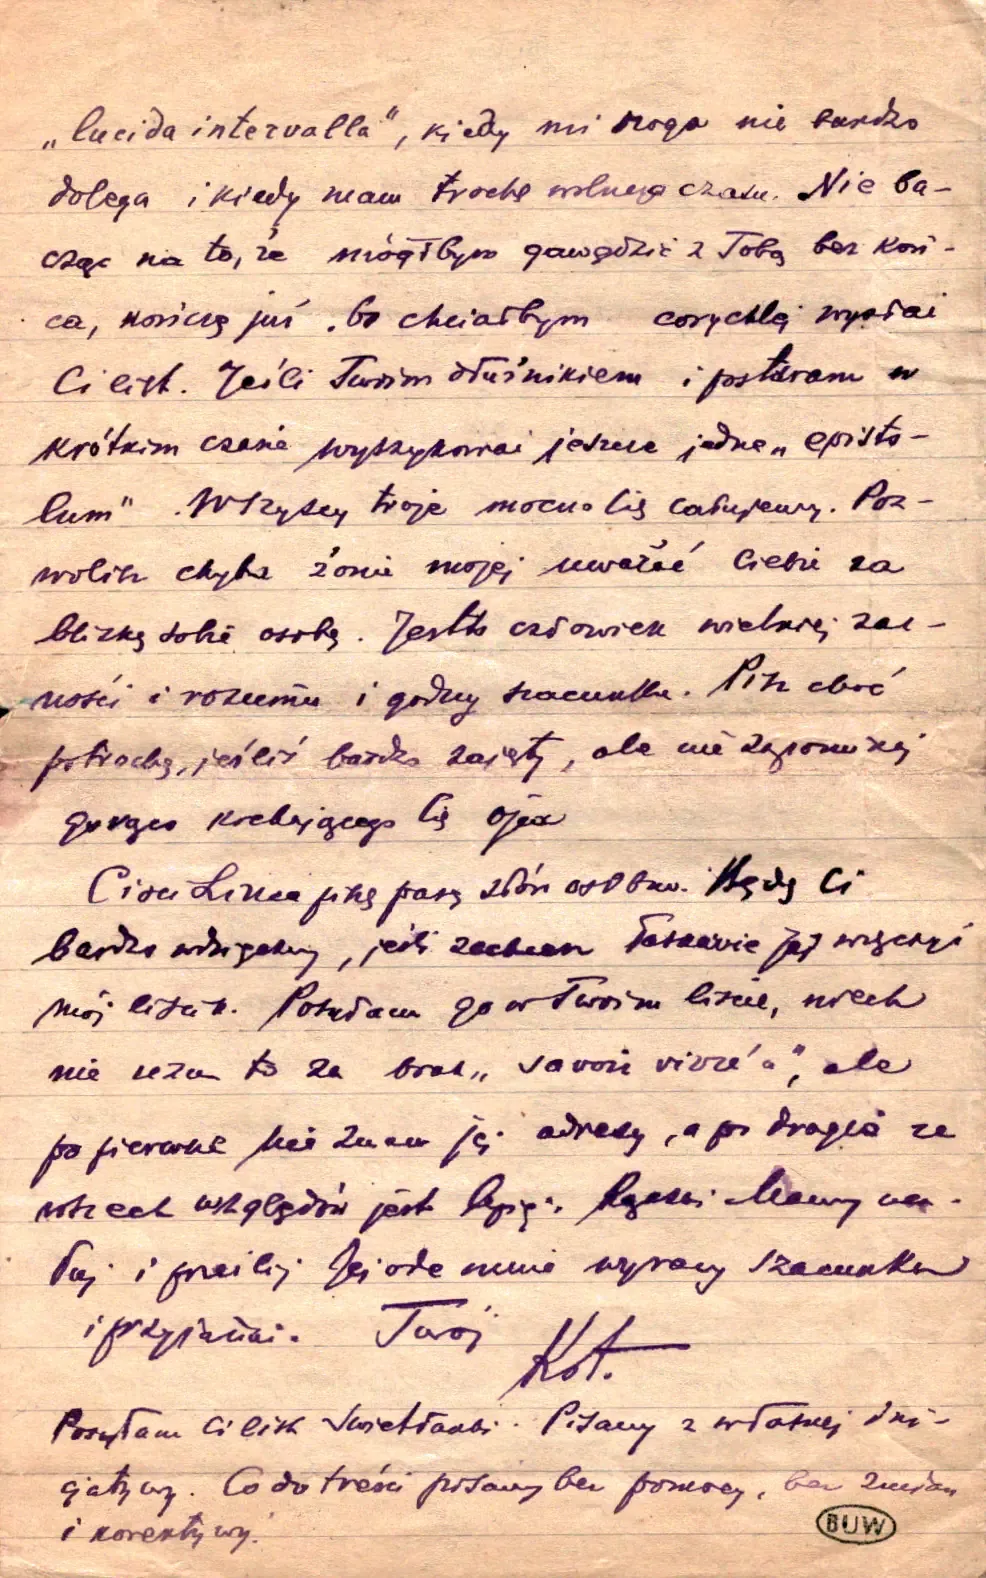 „lucida intervalla", kiedy mi noga nie bardzo
dolega i kiedy mam trochę wolnego czasu. Nie ba-
cząc na to, że mógłbym gawędzić z Tobą bez koń-
ca, kończę już, bo chciałbym corychlej wysłać
Ci list. Jeśli Twoim dłużnikiem i postaram w
krótkim czasie wyszykować jeszcze jedne „episto-
lum". Wszyscy troje mocno Cię całujemy. Poz-
wolisz chyba żonie mojej uważać Ciebie za
blizką sobie osobę. Jest to człowiek wielkiej zac-
ności i rozumu i godny szacunku. Pisz choć
potrochę, jeśliś bardzo zajęty, ale nie zapominaj
gorąco kochającego Cię ojca
Cioci piszę parę słów osobno. Będę Ci
bardzo wdzięczny, jeśli zechcesz łaskawie Jej wręczyć
mój liścik. Posyłam go w Twoim liście, niech
nie uzna to za brak „savoir vivre'a", ale
po pierwsze nie znam jej adresu, a po drugie ze
wszech względów jest lepiej. Mamy uca-
łuj i prześlij Jej ode mnie wyrazy szacunku
i przyjaźni. Twój
Kot.
Posyłam Ci list Swietłanki. Pisany z własnej ini-
cjatywy. Co do treści pisany bez pomocy, bez zmian
i korektywy.
BUW